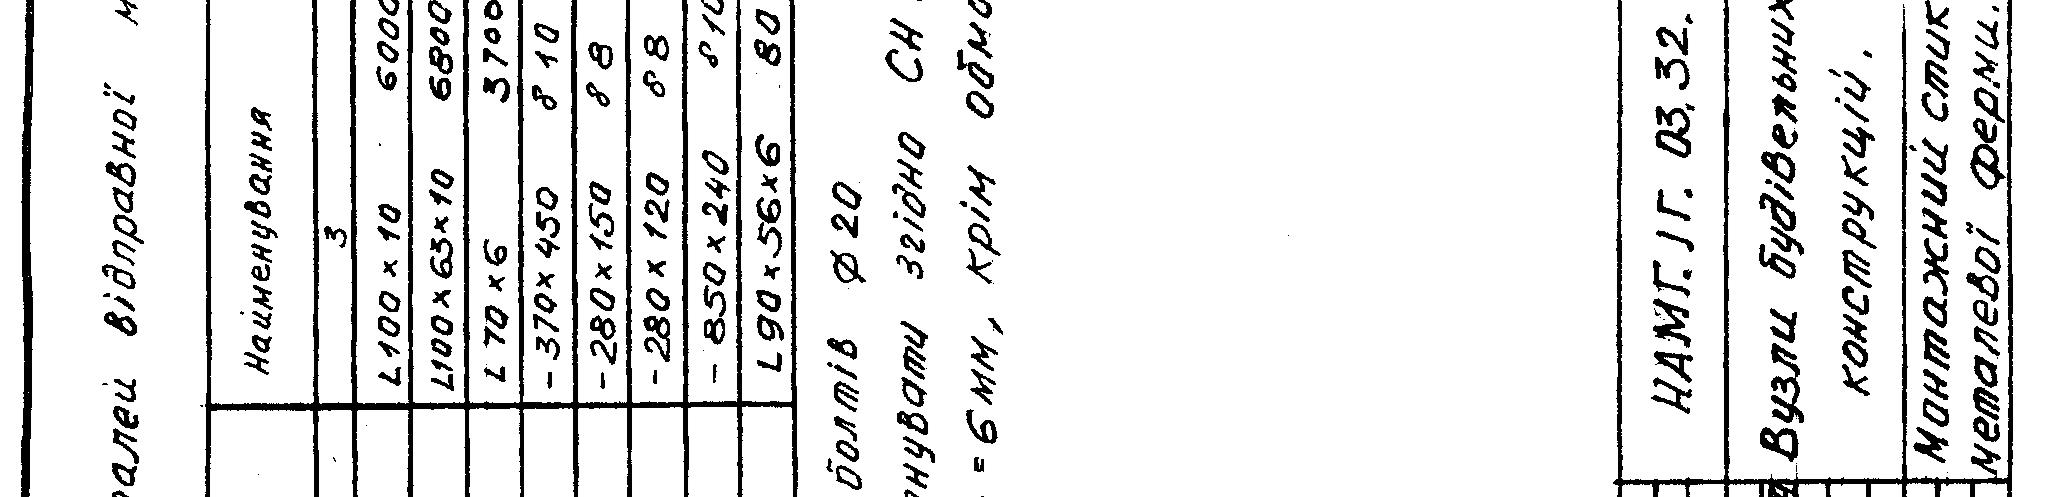 відправної
Найменування
3
L100×10 6000
L100×63×10 6800
L 70×6 3700
-370×450 8 10
-280×150 8 8
-280×120 8 8
-850×240 8 10
L90×56×6 80
болтів ⌀20
згідно СН
= 6 мм, крім
НАМГ. ІГ. 03.32.
Вузли будівельних
конструкцій.
Монтажний стик
металевої ферми.